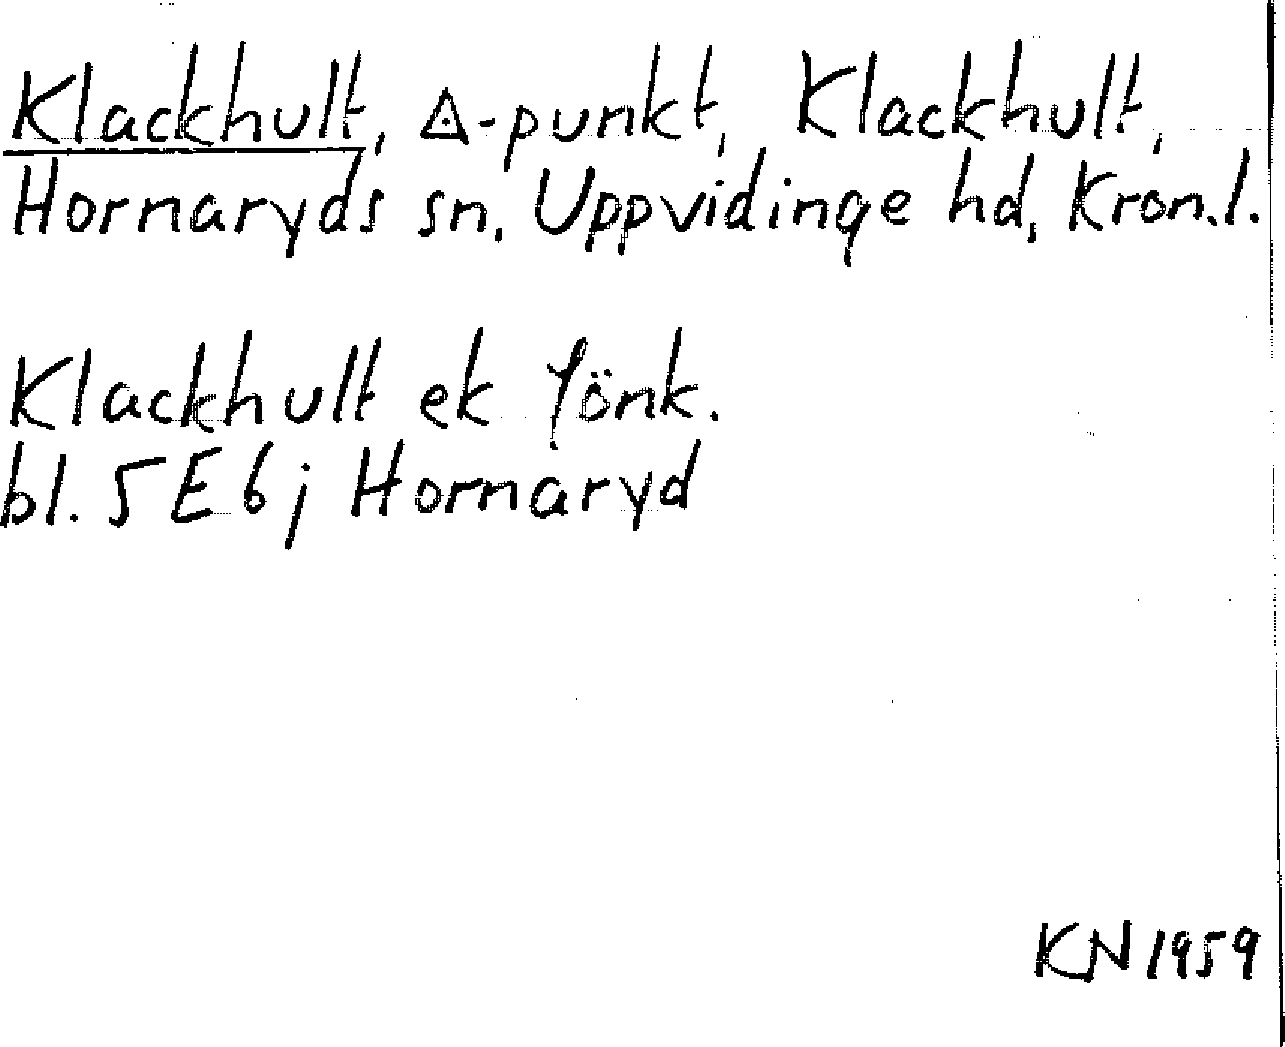 Klackhult, ◬-punkt, Klackhult,
Hornaryds sn, Uppvidinge hd, Kron.l.
Klackhult ek Jönk.
bl. 5E6j Hornaryd
KN 1959